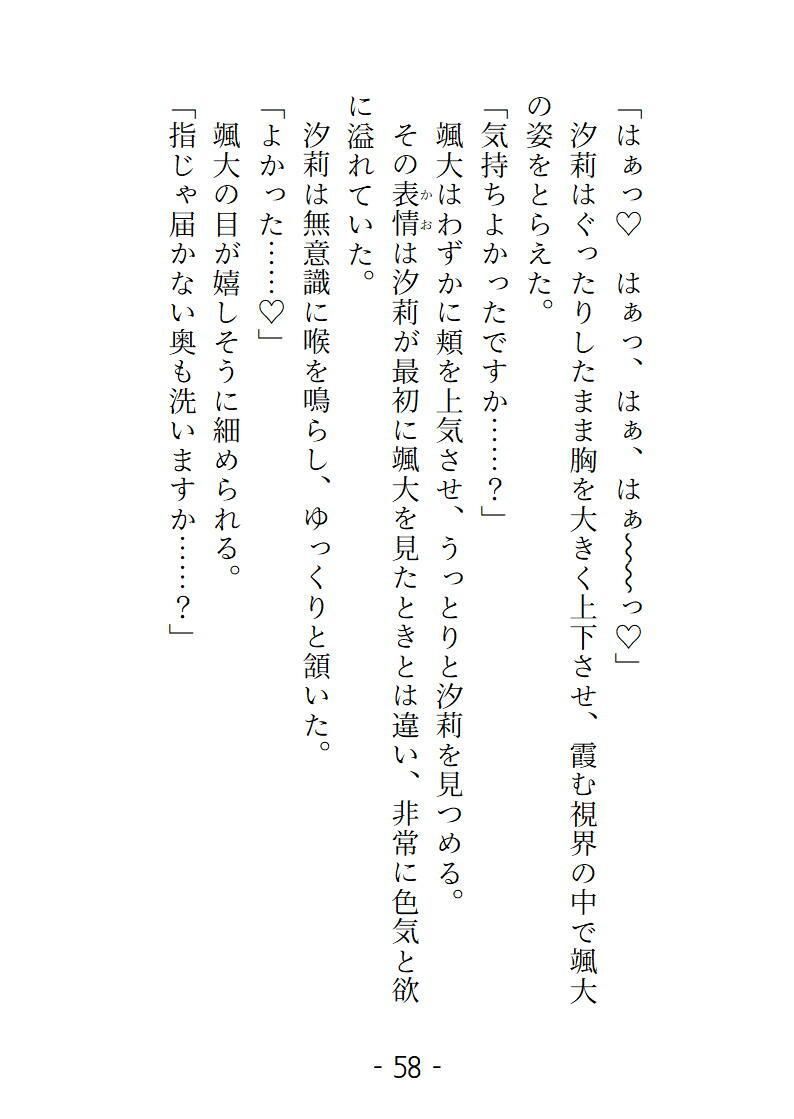 「はぁっ♡　はぁっ、はぁ、はぁ〜〜〜っ♡」
　汐莉はぐったりしたまま胸を大きく上下させ、霞む視界の中で颯大
の姿をとらえた。
「気持ちよかったですか……？」
　颯大はわずかに頬を上気させ、うっとりと汐莉を見つめる。
　その表情は汐莉が最初に颯大を見たときとは違い、非常に色気と欲
かお
に溢れていた。
　汐莉は無意識に喉を鳴らし、ゆっくりと頷いた。
「よかった……♡」
　颯大の目が嬉しそうに細められる。
「指じゃ届かない奥も洗いますか……？」
- 58 -